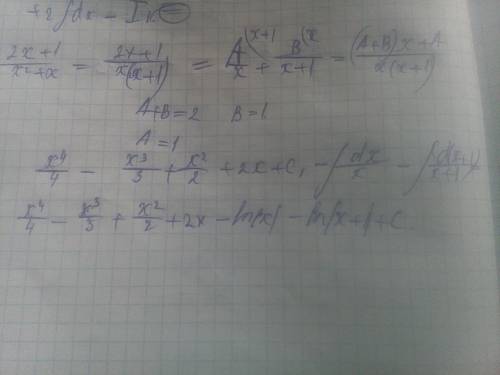 +2∫dx - I_k =
(2x+1)/(x²+x) = (2x+1)/(x(x+1)) = A^(x+1)/x + B^(x)/(x+1) = ((A+B)x+A)/(x(x+1))
A+B=2 B=1
A=1
x⁴/4 - x³/3 + x²/2 + 2x + C, - ∫dx/x - ∫d(x+1)/(x+1)
x⁴/4 - x³/3 + x²/2 + 2x - ln|x| - ln|x+1| + C